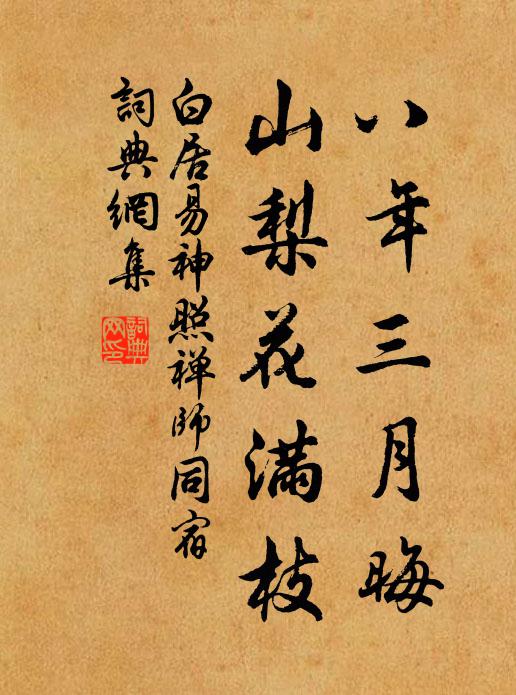 八年三月晦
山梨花满枝
白居易神照禅师同宿
詞典網集
詞典网印